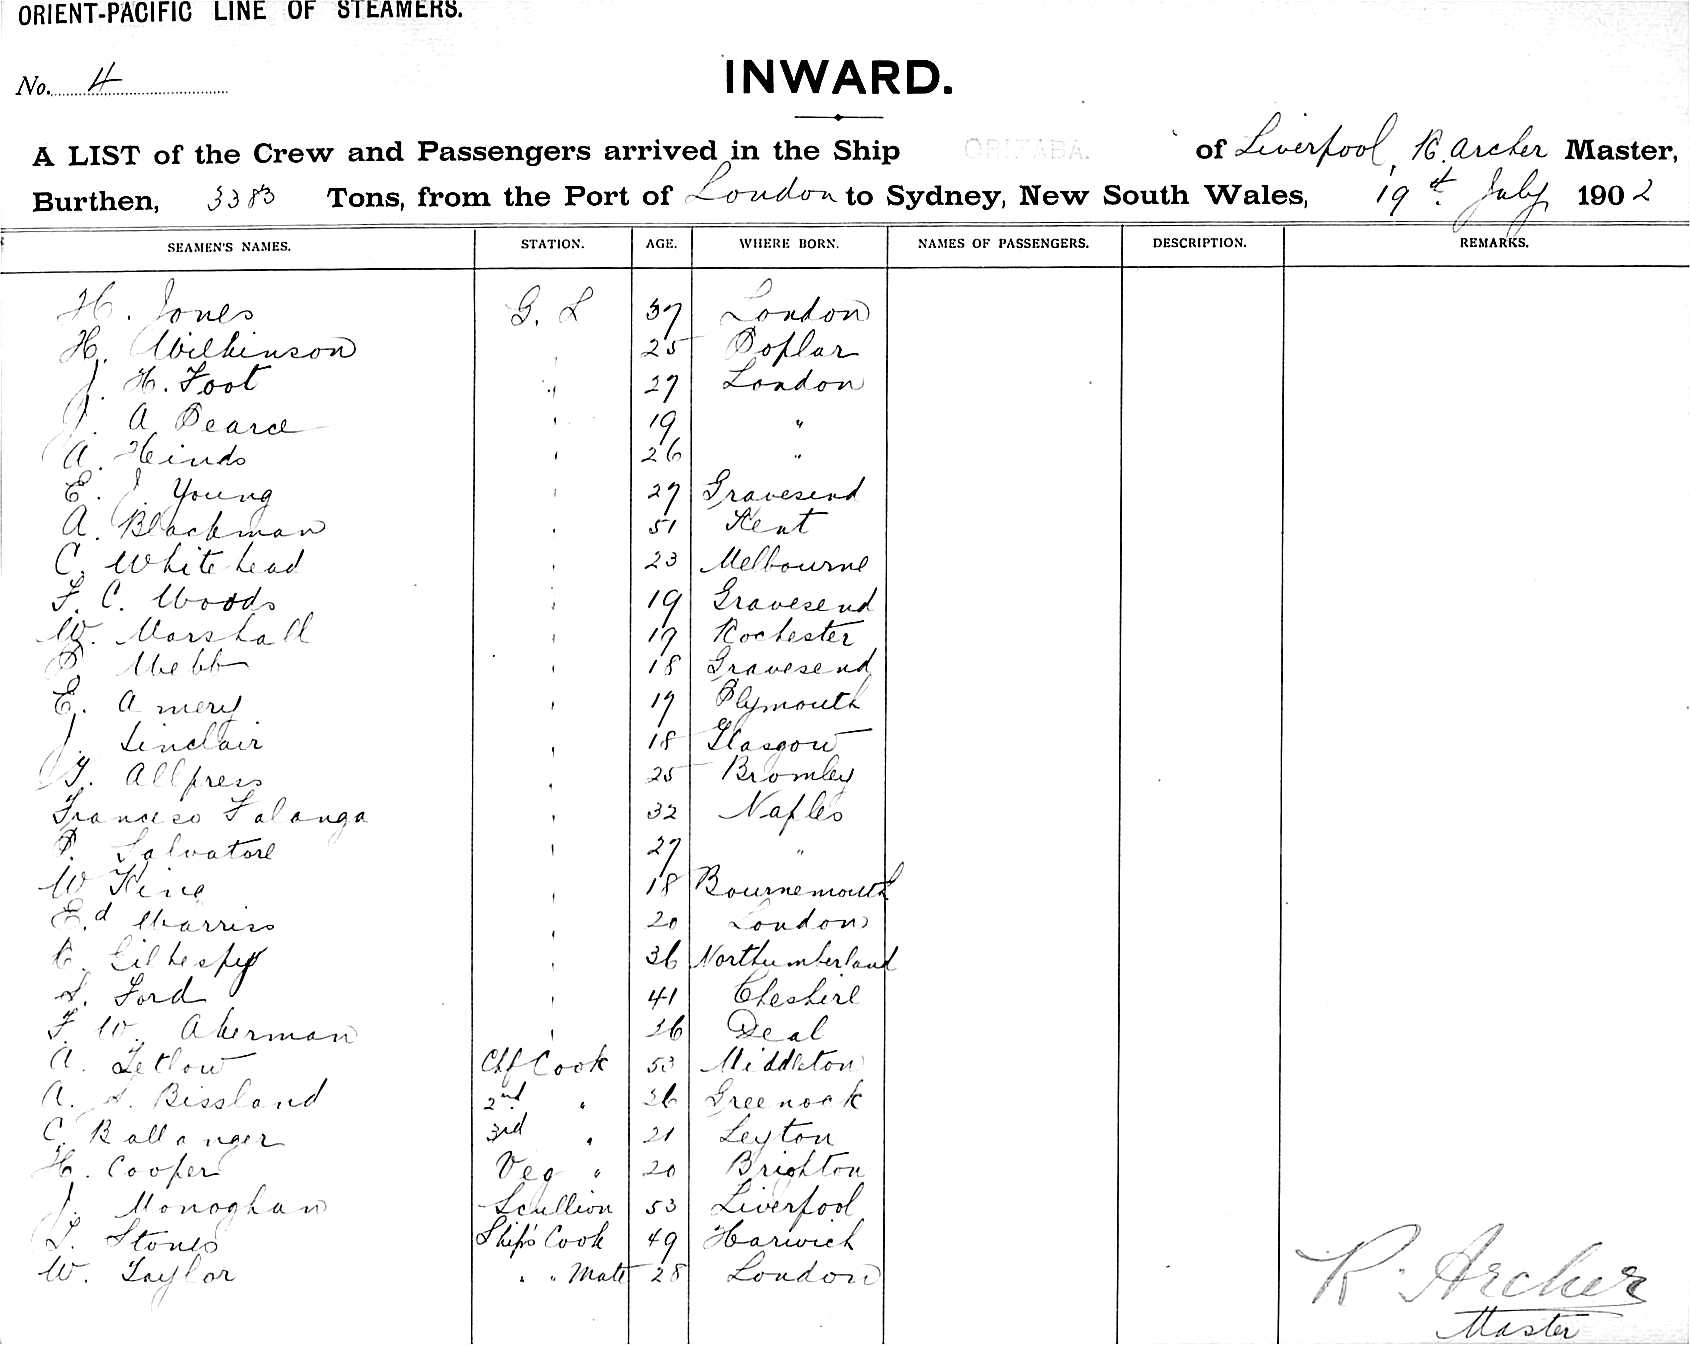 ORIENT-PACIFIC LINE OF STEAMERS.
No. 4
INWARD.
A LIST of the Crew and Passengers arrived in the Ship ORIZABA. of Liverpool, R. Archer Master,
Burthen, 3383 Tons, from the Port of London to Sydney, New South Wales, 19th July 1902
SEAMEN'S NAMES. STATION. AGE. WHERE BORN. NAMES OF PASSENGERS. DESCRIPTION. REMARKS.
H. Jones G. S 37 London
H. Wilkinson " 25 Poplar
J. H. Foot " 27 London
J. A Pearce " 19 "
A. Hinds " 26 "
E. J. Young " 27 Gravesend
A. Blackman " 51 Kent
C. Whitehead " 23 Melbourne
F. C. Woods " 19 Gravesend
W. Marshall " 17 Rochester
P Webb " 18 Gravesend
E. Amery " 17 Plymouth
J. Sinclair " 18 Glasgow
G. Allpress " 25 Bromley
Francesco Falanga " 32 Naples
P. Salvatore " 27 "
W King " 18 Bournemouth
Ed Warriss " 20 London
Gilhespy " 36 Northumberland
S. Ford " 41 Cheshire
F. W. Akerman " 36 Deal
A. Tetlow Chf Cook 53 Middleton
A. S. Bissland 2nd " 36 Greenock
C. Ballanger 3rd " 21 Leyton
H. Cooper Veg " 20 Brighton
J. Monoghan Scullion 53 Liverpool
T. Stones Ship's Cook 49 Harwich
W. Taylor " " Mate 28 London
R. Archer
Master